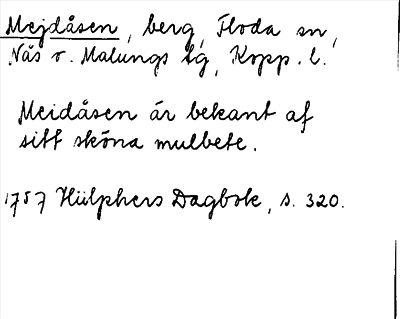 Mejdåsen, berg, Floda sn,
Nås o. Malungs tg, Kopp. l.
Meidåsen är bekant af
sitt sköna mulbete.
1757 Hülphers Dagbok, s. 320.